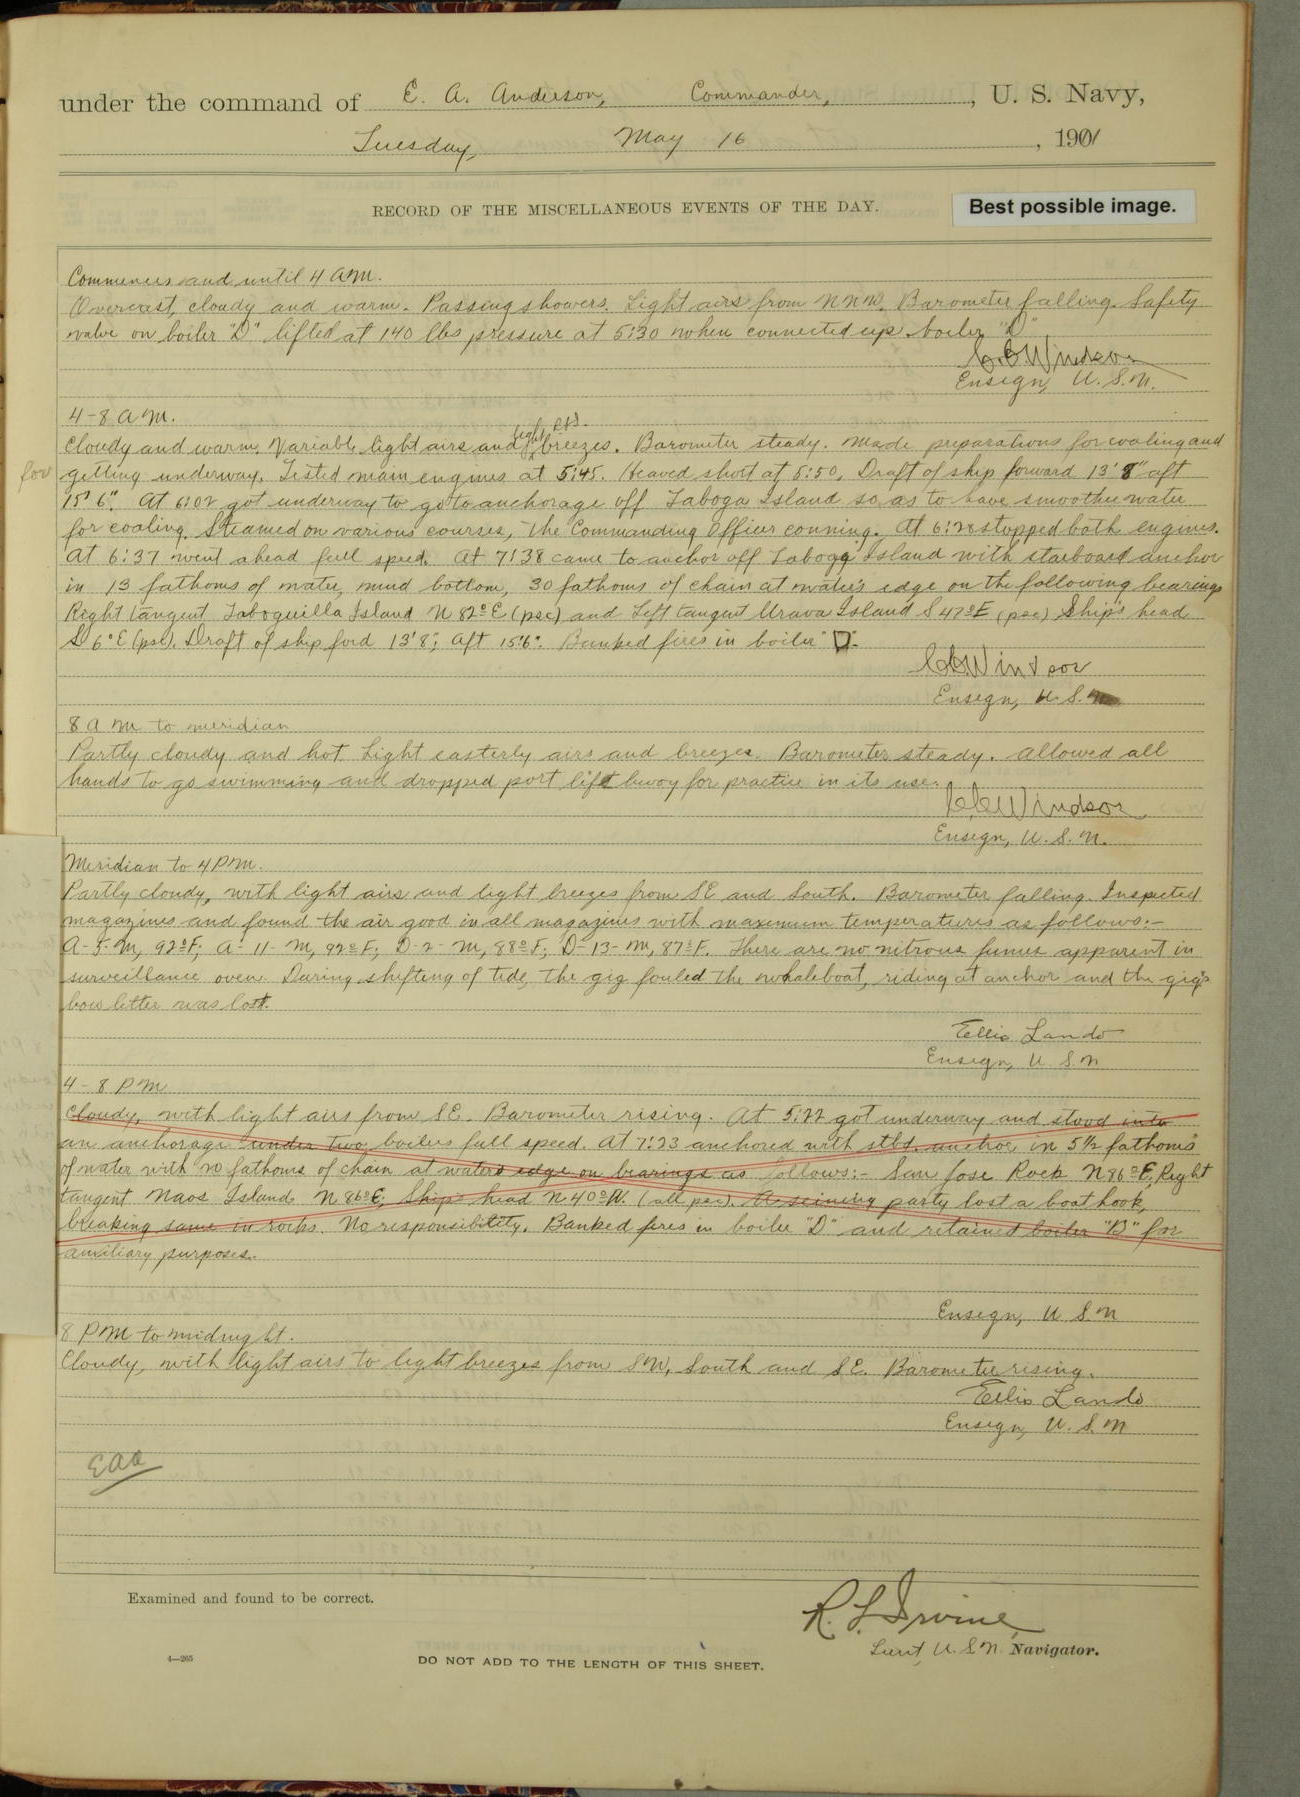 under the command of E. A. Anderson, Commander, , U. S. Navy,
Tuesday, May 16 , 190
RECORD OF THE MISCELLANEOUS EVENTS OF THE DAY.
Best possible image.
Commences and until 4 AM.
Overcast, cloudy and warm. Passing showers. Light airs from NNW. Barometer falling. Safety
valve on boiler "D" lifted at 140 lbs pressure at 5:30 when connected up boiler "D"
Windsor
Ensign, U.S.N.
4-8 AM.
light
Cloudy and warm. Variable light airs and breezes. Barometer steady. Made preparations for coaling and
for
getting underway. Tested main engines at 5:45. Heaved short at 5:50, Draft of ship forward 13' 8" aft
15' 6". At 6:02 got underway to go to anchorage off Taboga Island so as to have smoother water
for coaling. Steamed on various courses, The Commanding Officer conning. At 6:28 stopped both engines.
At 6:37 went ahead full speed. At 7:38 came to anchor off Taboga Island with starboard anchor
in 13 fathoms of water, mud bottom, 30 fathoms of chain at water's edge on the following bearings
Right tangent Taboguilla Island N 82° E (psc) and Left tangent Urava Island S 47° E (psc) Ship's head
S 6° E (psc). Draft of ship ford 13' 8"; aft 15' 6". Banked fires in boiler "D".
Windsor
Ensign, U.S.
8 AM to meridian
Partly cloudy and hot. Light easterly airs and breezes. Barometer steady. Allowed all
hands to go swimming and dropped port life buoy for practice in its use.
Windsor
Ensign, U.S.N.
Meridian to 4 PM.
Partly cloudy, with light airs and light breezes from SE and South. Barometer falling. Inspected
magazines and found the air good in all magazines with maximum temperatures as follows:-
A-5-M, 92°F; A-11-M, 92°F; D-2-M, 88°F; D-13-M, 87°F. There are no nitrous fumes apparent in
surveillance oven. During shifting of tide, the gig fouled the whaleboat, riding at anchor and the gig's
bow letter was lost.
Ellis Lando
Ensign, U.S.N
4-8 PM
Cloudy, with light airs from SE. Barometer rising. At 5:22 got underway and stood into
an anchorage under two boilers full speed. At 7:23 anchored with stbd. anchor in 5½ fathoms
of water with fathoms of chain at waters edge on bearings as follows:- San Jose Rock N 86° E; Right
tangent Naos Island N 86° E; Ship's head N 40° W. (all psc). A seining party lost a boat hook,
breaking same in rocks. No responsibility. Banked fires in boiler "D" and retained boiler "B" for
auxiliary purposes.
Ensign, U.S.N
8 PM to midnight.
Cloudy, with light airs to light breezes from SW, South and SE. Barometer rising.
Ellis Lando
Ensign, U.S.N
EAA
Examined and found to be correct.
R. L. Irvine
Lieut, U.S.N. Navigator.
4—265
DO NOT ADD TO THE LENGTH OF THIS SHEET.